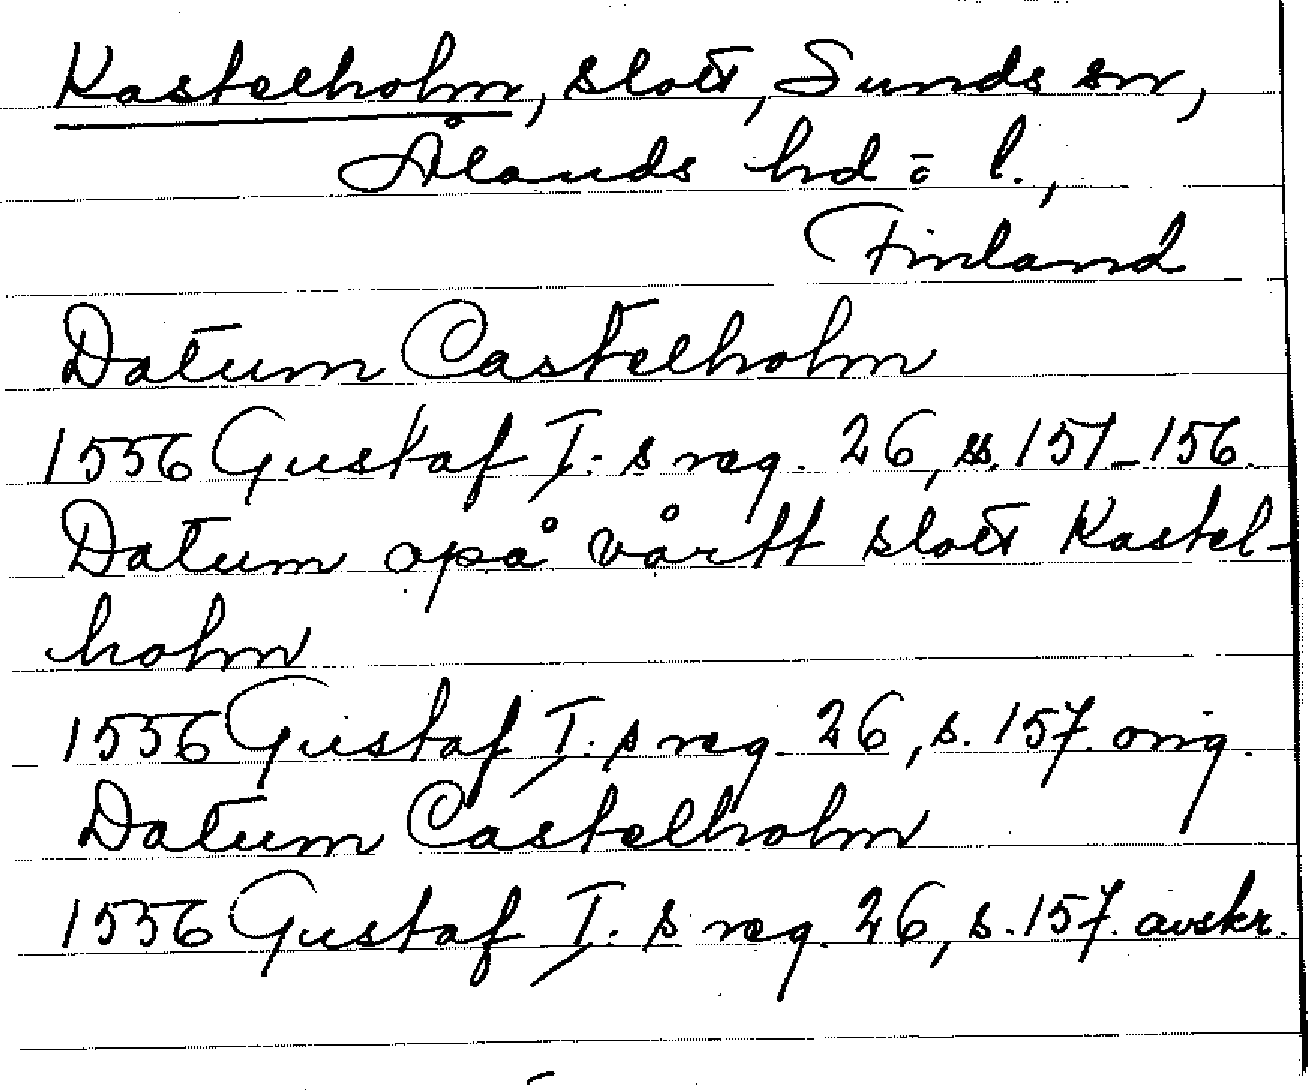 Kastelholm, slott, Sunds sn,
Ålands hd o l.,
Finland
Datum Castelholm
1556 Gustaf I:s reg. 26, ss. 151-156.
Datum opå vårtt slott Kastel-
holm
1556 Gustaf I:s reg. 26, s. 157. orig.
Datum Castelholm
1556 Gustaf I:s reg. 26, s. 157. avskr.